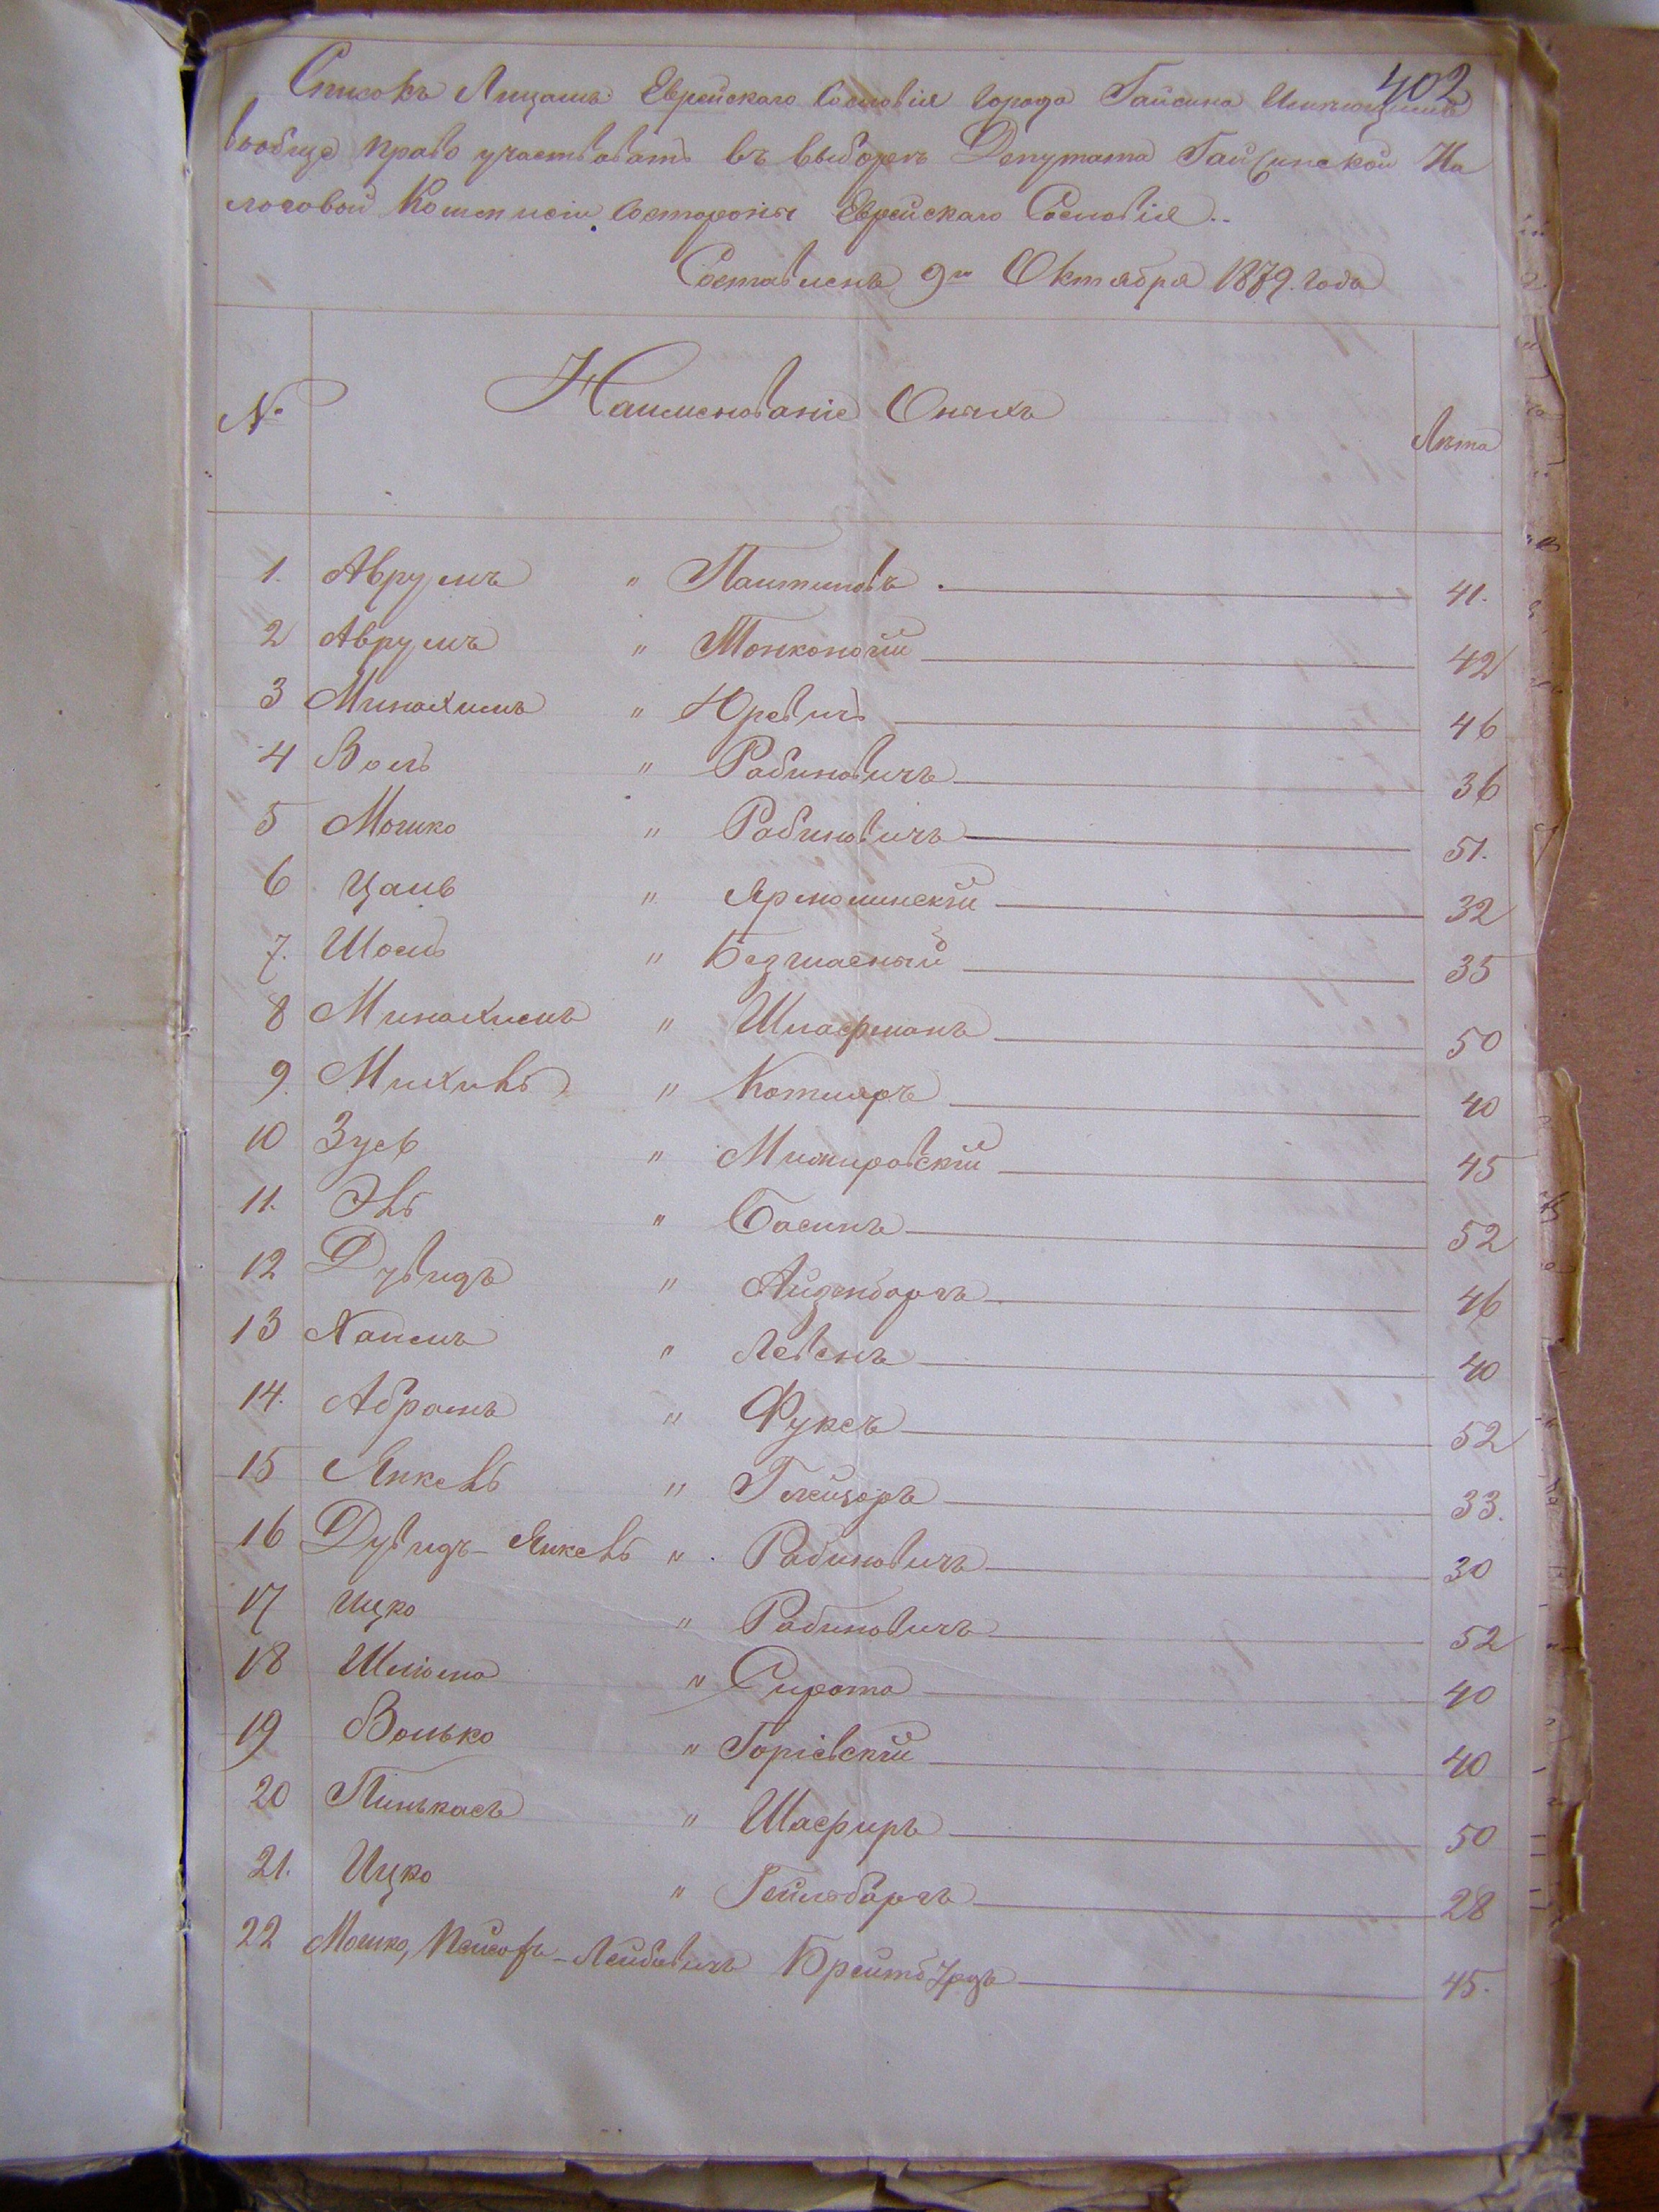 402
Списокъ Лицамъ Еврейскаго Сословія Города Гайсина Имѣющимъ
вообще право участвовать въ выборѣ Депутата Гайсинской На
логовой Коммисіи состороны Еврейскаго Сословія..
Составленъ 9го Октября 1879. года
№ Наименованіе Оныхъ Лѣта
1. Аврумъ " Паитиновъ . 41.
2 Аврумъ " Тонконогій 42
3 Минахимъ " Юревичъ 46
4 Волъ " Рабиновичъ 36
5 Мошко " Рабиновичъ 51.
6 Цаль " Ярмолинскій 32
7. Шоелъ " Безгласный 35
8 Минахимъ " Шлафманъ 50
9. Михивъ " Котляръ 40
10 Зусь " Мижировскій 45
11. Эвъ " Басинъ 52
12 Дувидъ " Айзенборгъ 46
13 Хаимъ " Левенъ 40
14. Абрамъ " Фуксъ 52
15 Янкевъ " 33.
16 Дувидъ-Янкевъ " Рабиновичъ 30
17 Ицко " Рабиновичъ 52
18 Шлюма " Сирота 40
19 Волько " Горіевскій 40
20 Пинькасъ " Шафиръ 50
21. Ицко " Гейлоборгъ 28
22 Мошко, Лейбовичъ 45.